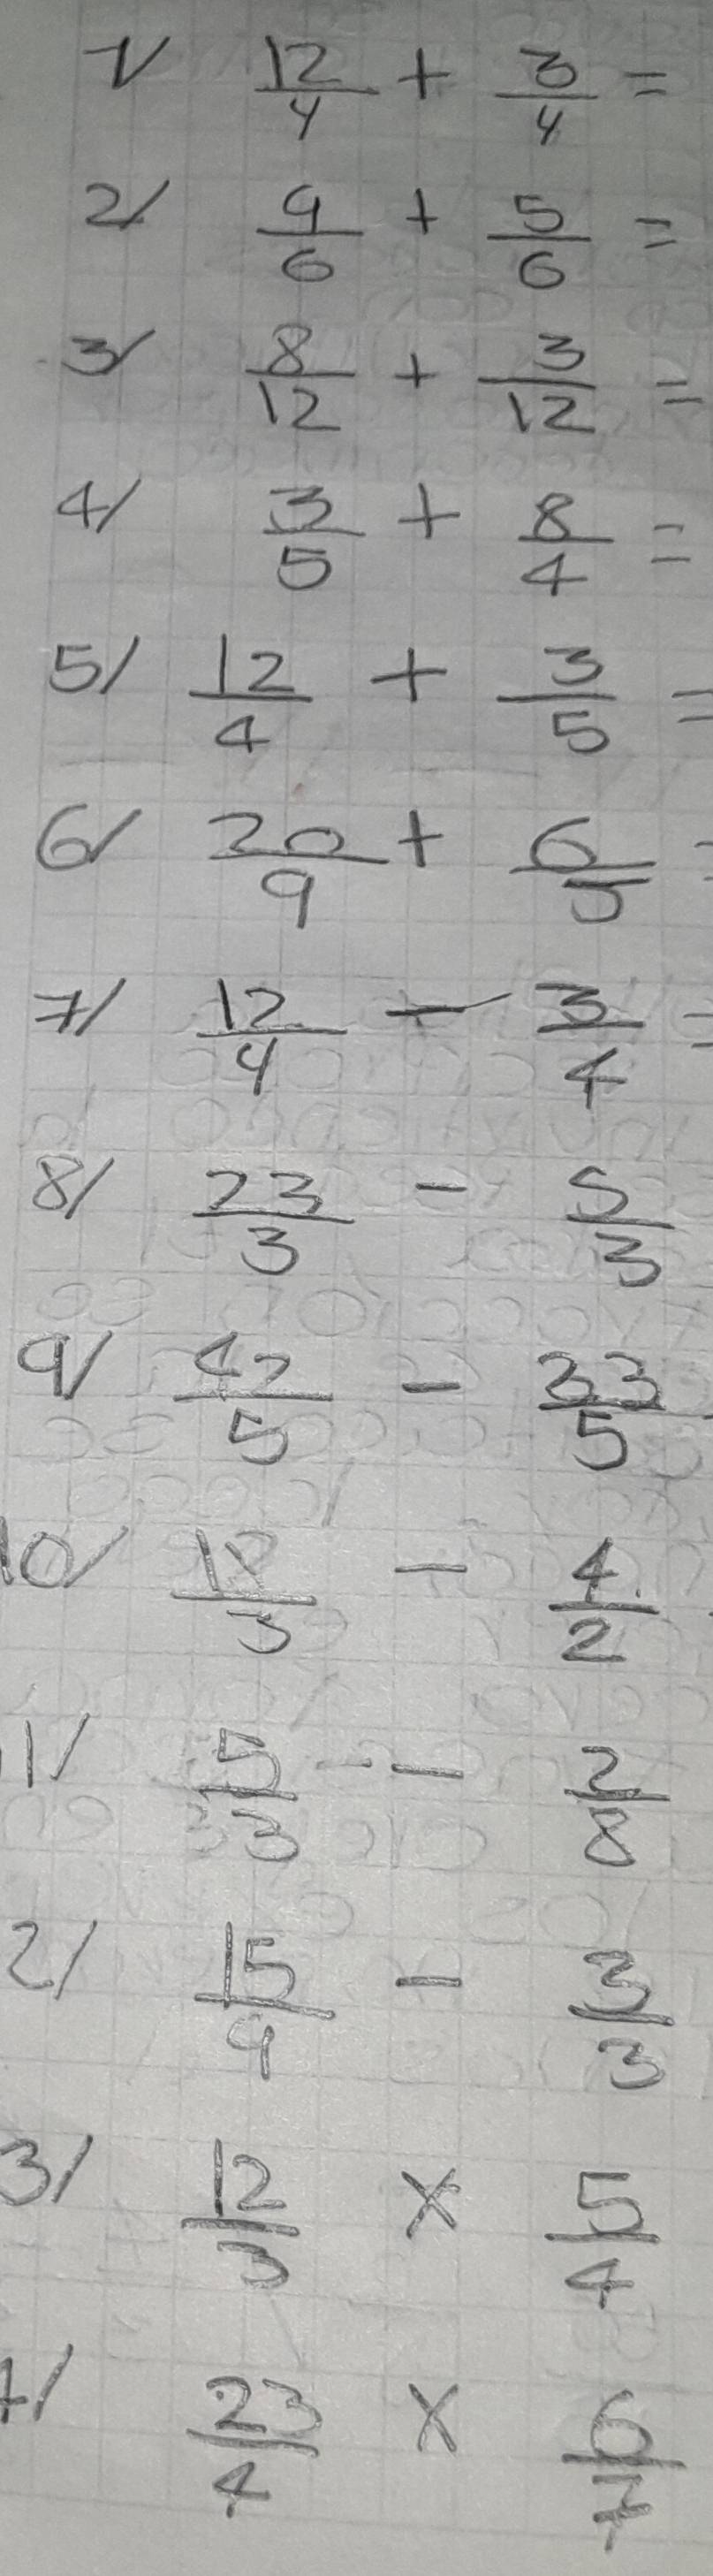 1/ 12/4 + 3/4 =
2/ 9/6 + 5/6 =
3/ 8/12 + 3/12 =
4/ 3/5 + 8/4 =
5/ 12/4 + 3/5 =
6/ 20/9 + 6/5 =
7/ 12/4 - 3/4 =
8/ 23/3 - 5/3
9/ 42/5 - 33/5
10/ /3 - 4/2
1/ 5/3 - 2/8
2/ 15/4 - 3/3
3/ 12/3 x 5/4
4/ 23/4 x 6/7